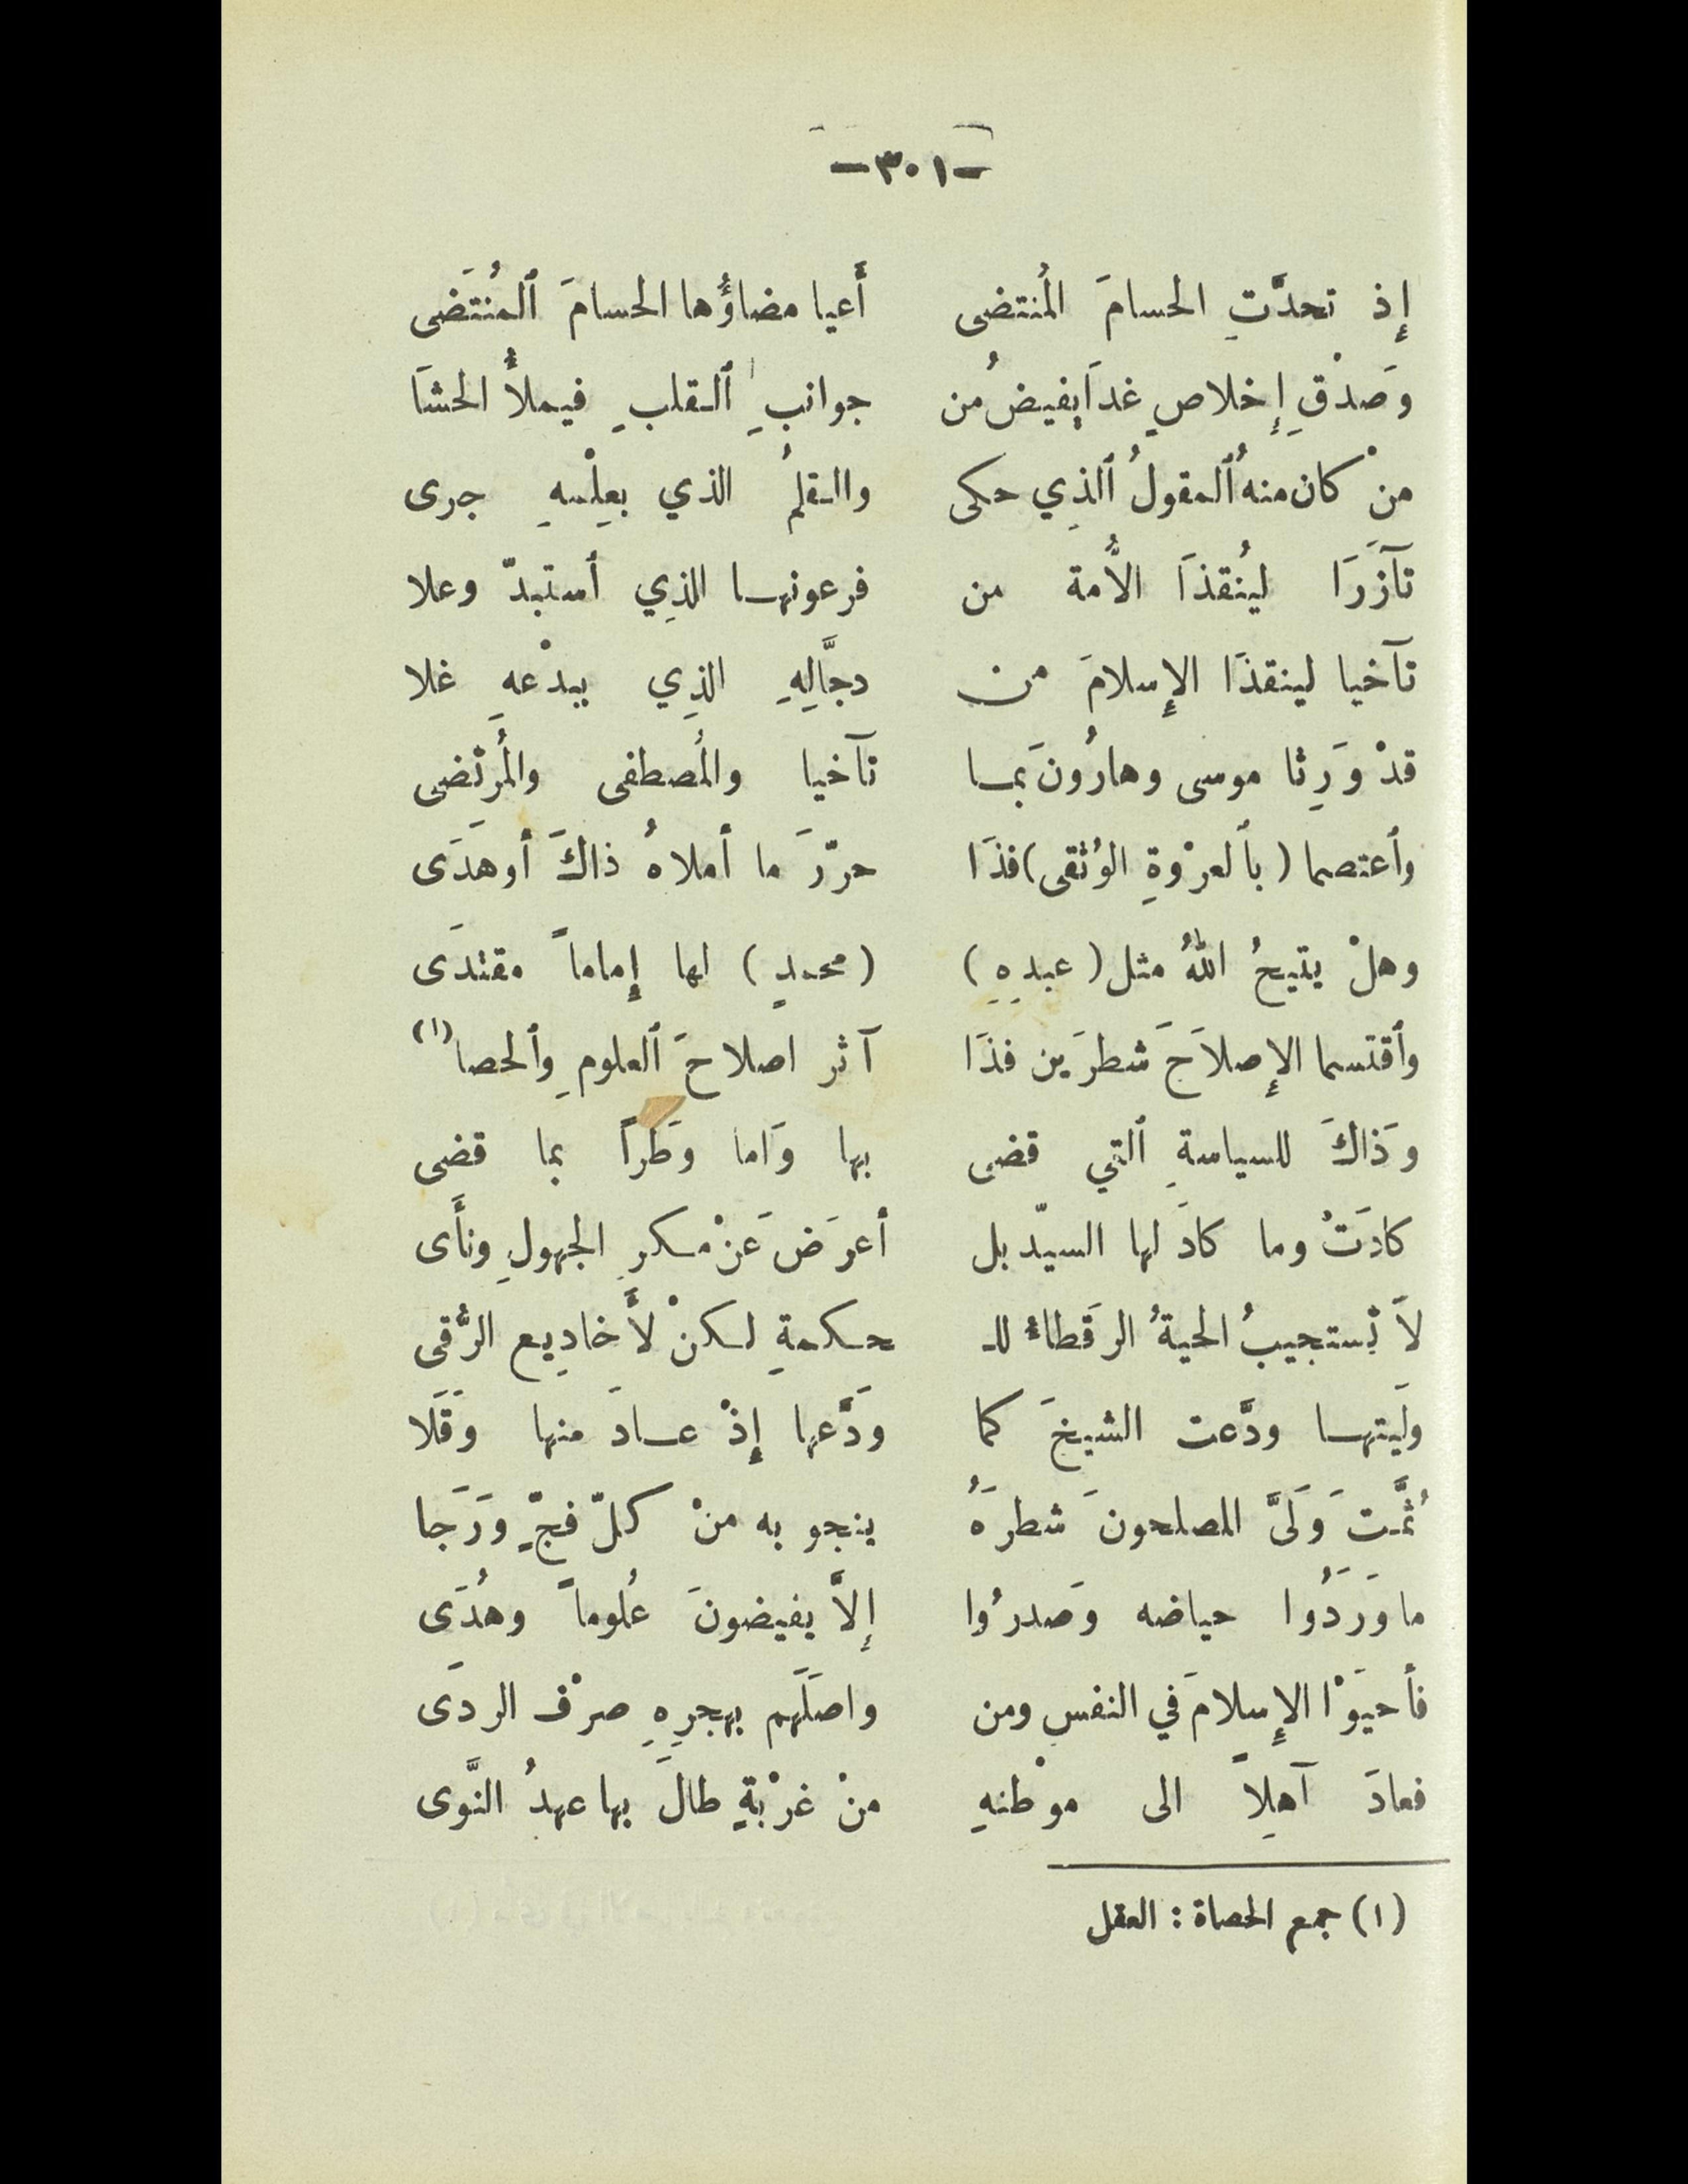 -٣٠١-
إِذ تحدَّتِ الحسامَ المُنتضى أَعيا مضاؤُها الحسامَ ٱلمُنتَضى
وَصدْقِ إِخلاصٍ غدَا يفيضُ من جوانبِ ٱلقلبِ فيملأُ الحشَا
منْ كان منهُ ٱلمقولُ ٱلذِي حكى والقلمُ الذي بعِلْمهِ جرى
تآزَرَا ليُنقذَا الأُمة من فرعونها الذِي ٱستبدّ وعلا
تآخيا لينقذَا الإِسلامَ من دجَّالِهِ الذِي ببدْعهِ غلا
قدْ وَرِثا موسى وهارُونَ بما تآخيا والمُصطفى والمُرتَضى
وٱعتصما (بٱلعرْوةِ الوُثقى) فذَا حرّرَ ما أملاهُ ذاكَ أوهدَى
وهلْ يتيحُ اللهُ مثل (عبدِهِ) (محمدٍ) لها إِماماً مقتدَى
وٱقتسما الإِصلاَحَ شطرَين فذَا آثر اصلاحَ ٱلعلومِ وٱلحصا (١)
وَذاكَ للسياسةِ ٱلتي قضى بها وَاما وَطَراً بما قضى
كادَتْ وما كادَ لها السيّد بل أعرَضَ عَنْ مكرِ الجهولِ ونأَى
لاَ تستجيبُ الحيةُ الرقَطاءُ للـ حكمةِ لكنْ لأَخادِيع الرُّقى
ولَيتها ودَّعت الشيخَ كما ودَّعها إِذْ عادَ منها وَقَلَا
ثُمَّتَ وَلَىَّ المصلحونَ شطرَهُ ينجو به منْ كلّ فجٍّ وَرَجا
ما وَرَدُوا حياضه وَصدرُوا إِلاَّ يفيضونَ عُلوماً وهُدَى
فأحيَوْا الإِسلامَ في النفس ومن واصَلَهم بهجرِهِ صرْف الردَى
فعادَ آهِلاً الى موْطنهِ منْ غرْبةٍ طالَ بها عهدُ النَّوى
(١) جمع الحصاة : العقل